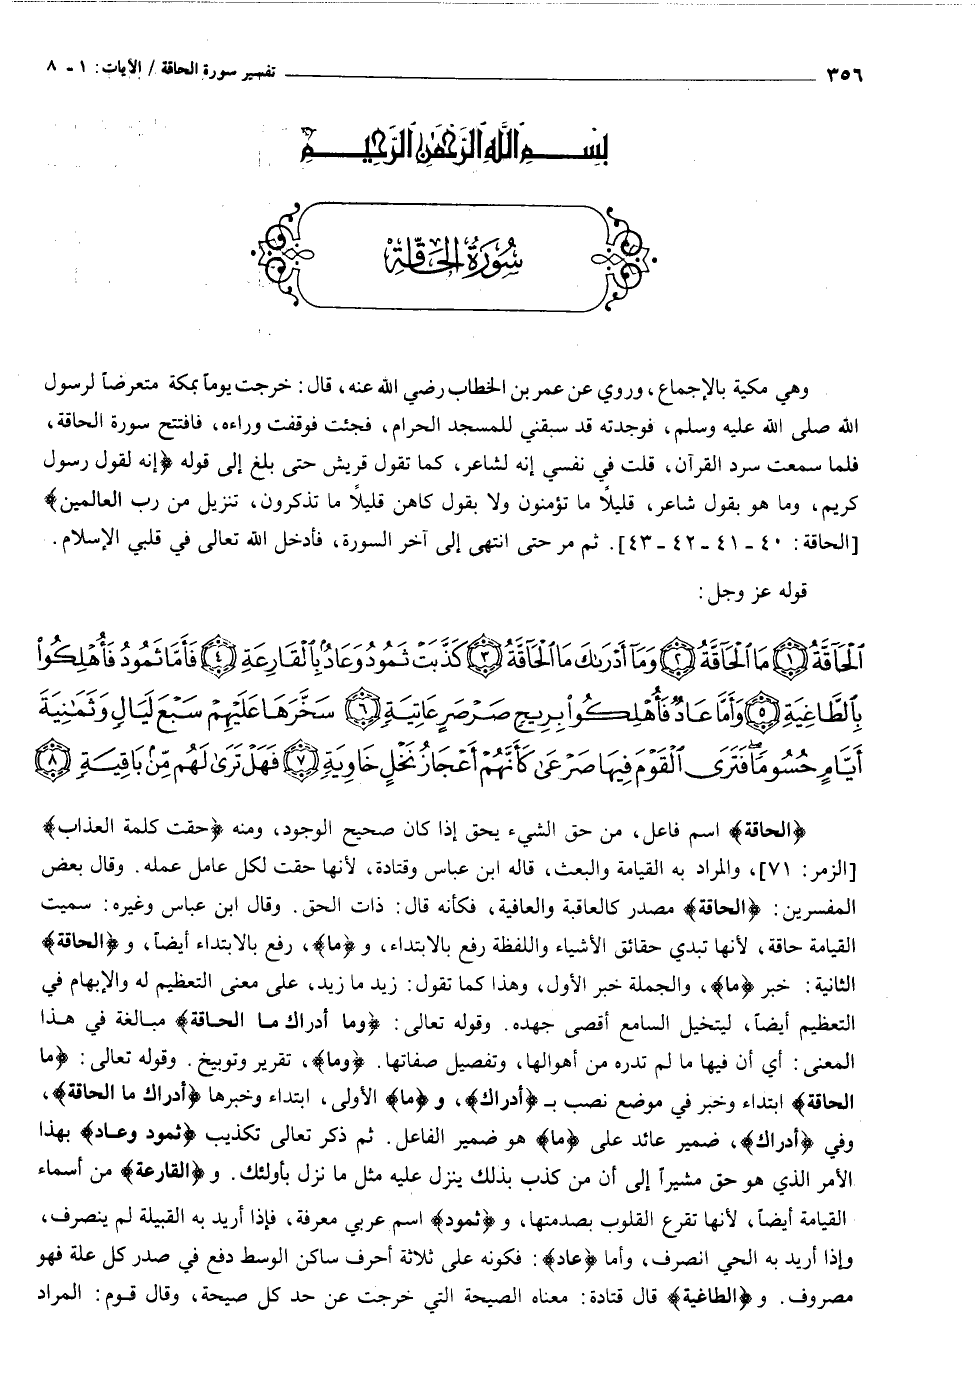 ٣٥٦ تفسير سورة الحاقة / الآيات: ١ - ٨
بِسْمِ اللَّهِ الرَّحْمَٰنِ الرَّحِيمِ
سُورَةُ الحَاقَّةِ
وهي مكية بالإجماع، وروي عن عمر بن الخطاب رضي الله عنه، قال: خرجت يوماً بمكة متعرضاً لرسول
الله صلى الله عليه وسلم، فوجدته قد سبقني للمسجد الحرام، فجئت فوقفت وراءه، فافتتح سورة الحاقة،
فلما سمعت سرد القرآن، قلت في نفسي إنه لشاعر، كما تقول قريش حتى بلغ إلى قوله ﴿إنه لقول رسول
كريم، وما هو بقول شاعر، قليلًا ما تؤمنون ولا بقول كاهن قليلًا ما تذكرون، تنزيل من رب العالمين﴾
[الحاقة: ٤٠ - ٤١ - ٤٢ - ٤٣]. ثم مر حتى انتهى إلى آخر السورة، فأدخل الله تعالى في قلبي الإسلام.
قوله عز وجل:
ٱلْحَآقَّةُ ﴿١﴾ مَا ٱلْحَآقَّةُ ﴿٢﴾ وَمَآ أَدْرَىٰكَ مَا ٱلْحَآقَّةُ ﴿٣﴾ كَذَّبَتْ ثَمُودُ وَعَادٌۢ بِٱلْقَارِعَةِ ﴿٤﴾ فَأَمَّا ثَمُودُ فَأُهْلِكُوا۟
بِٱلطَّاغِيَةِ ﴿٥﴾ وَأَمَّا عَادٌ فَأُهْلِكُوا۟ بِرِيحٍ صَرْصَرٍ عَاتِيَةٍ ﴿٦﴾ سَخَّرَهَا عَلَيْهِمْ سَبْعَ لَيَالٍ وَثَمَٰنِيَةَ
أَيَّامٍ حُسُومًا فَتَرَى ٱلْقَوْمَ فِيهَا صَرْعَىٰ كَأَنَّهُمْ أَعْجَازُ نَخْلٍ خَاوِيَةٍ ﴿٧﴾ فَهَلْ تَرَىٰ لَهُم مِّنۢ بَاقِيَةٍ ﴿٨﴾
﴿الحاقة﴾ اسم فاعل، من حق الشيء يحق إذا كان صحيح الوجود، ومنه ﴿حقت كلمة العذاب﴾
[الزمر: ٧١]، والمراد به القيامة والبعث، قاله ابن عباس وقتادة، لأنها حقت لكل عامل عمله. وقال بعض
المفسرين: ﴿الحاقة﴾ مصدر كالعاقبة والعافية، فكأنه قال: ذات الحق. وقال ابن عباس وغيره: سميت
القيامة حاقة، لأنها تبدي حقائق الأشياء واللفظة رفع بالابتداء، و﴿ما﴾، رفع بالابتداء أيضاً، و﴿الحاقة﴾
الثانية: خبر ﴿ما﴾، والجملة خبر الأول، وهذا كما تقول: زيد ما زيد، على معنى التعظيم له والإبهام في
التعظيم أيضاً، ليتخيل السامع أقصى جهده. وقوله تعالى: ﴿وما أدراك ما الحاقة﴾ مبالغة في هذا
المعنى: أي أن فيها ما لم تدره من أهوالها، وتفصيل صفاتها. ﴿وما﴾، تقرير وتوبيخ. وقوله تعالى: ﴿ما
الحاقة﴾ ابتداء وخبر في موضع نصب بـ ﴿أدراك﴾، و﴿ما﴾ الأولى، ابتداء وخبرها ﴿أدراك ما الحاقة﴾،
وفي ﴿أدراك﴾، ضمير عائد على ﴿ما﴾ هو ضمير الفاعل. ثم ذكر تعالى تكذيب ﴿ثمود وعاد﴾ بهذا
الأمر الذي هو حق مشيراً إلى أن من كذب بذلك ينزل عليه مثل ما نزل بأولئك. و﴿القارعة﴾ من أسماء
القيامة أيضاً، لأنها تقرع القلوب بصدمتها، و﴿ثمود﴾ اسم عربي معرفة، فإذا أريد به القبيلة لم ينصرف،
وإذا أريد به الحي انصرف، وأما ﴿عاد﴾: فكونه على ثلاثة أحرف ساكن الوسط دفع في صدر كل علة فهو
مصروف. و﴿الطاغية﴾ قال قتادة: معناه الصيحة التي خرجت عن حد كل صيحة، وقال قوم: المراد